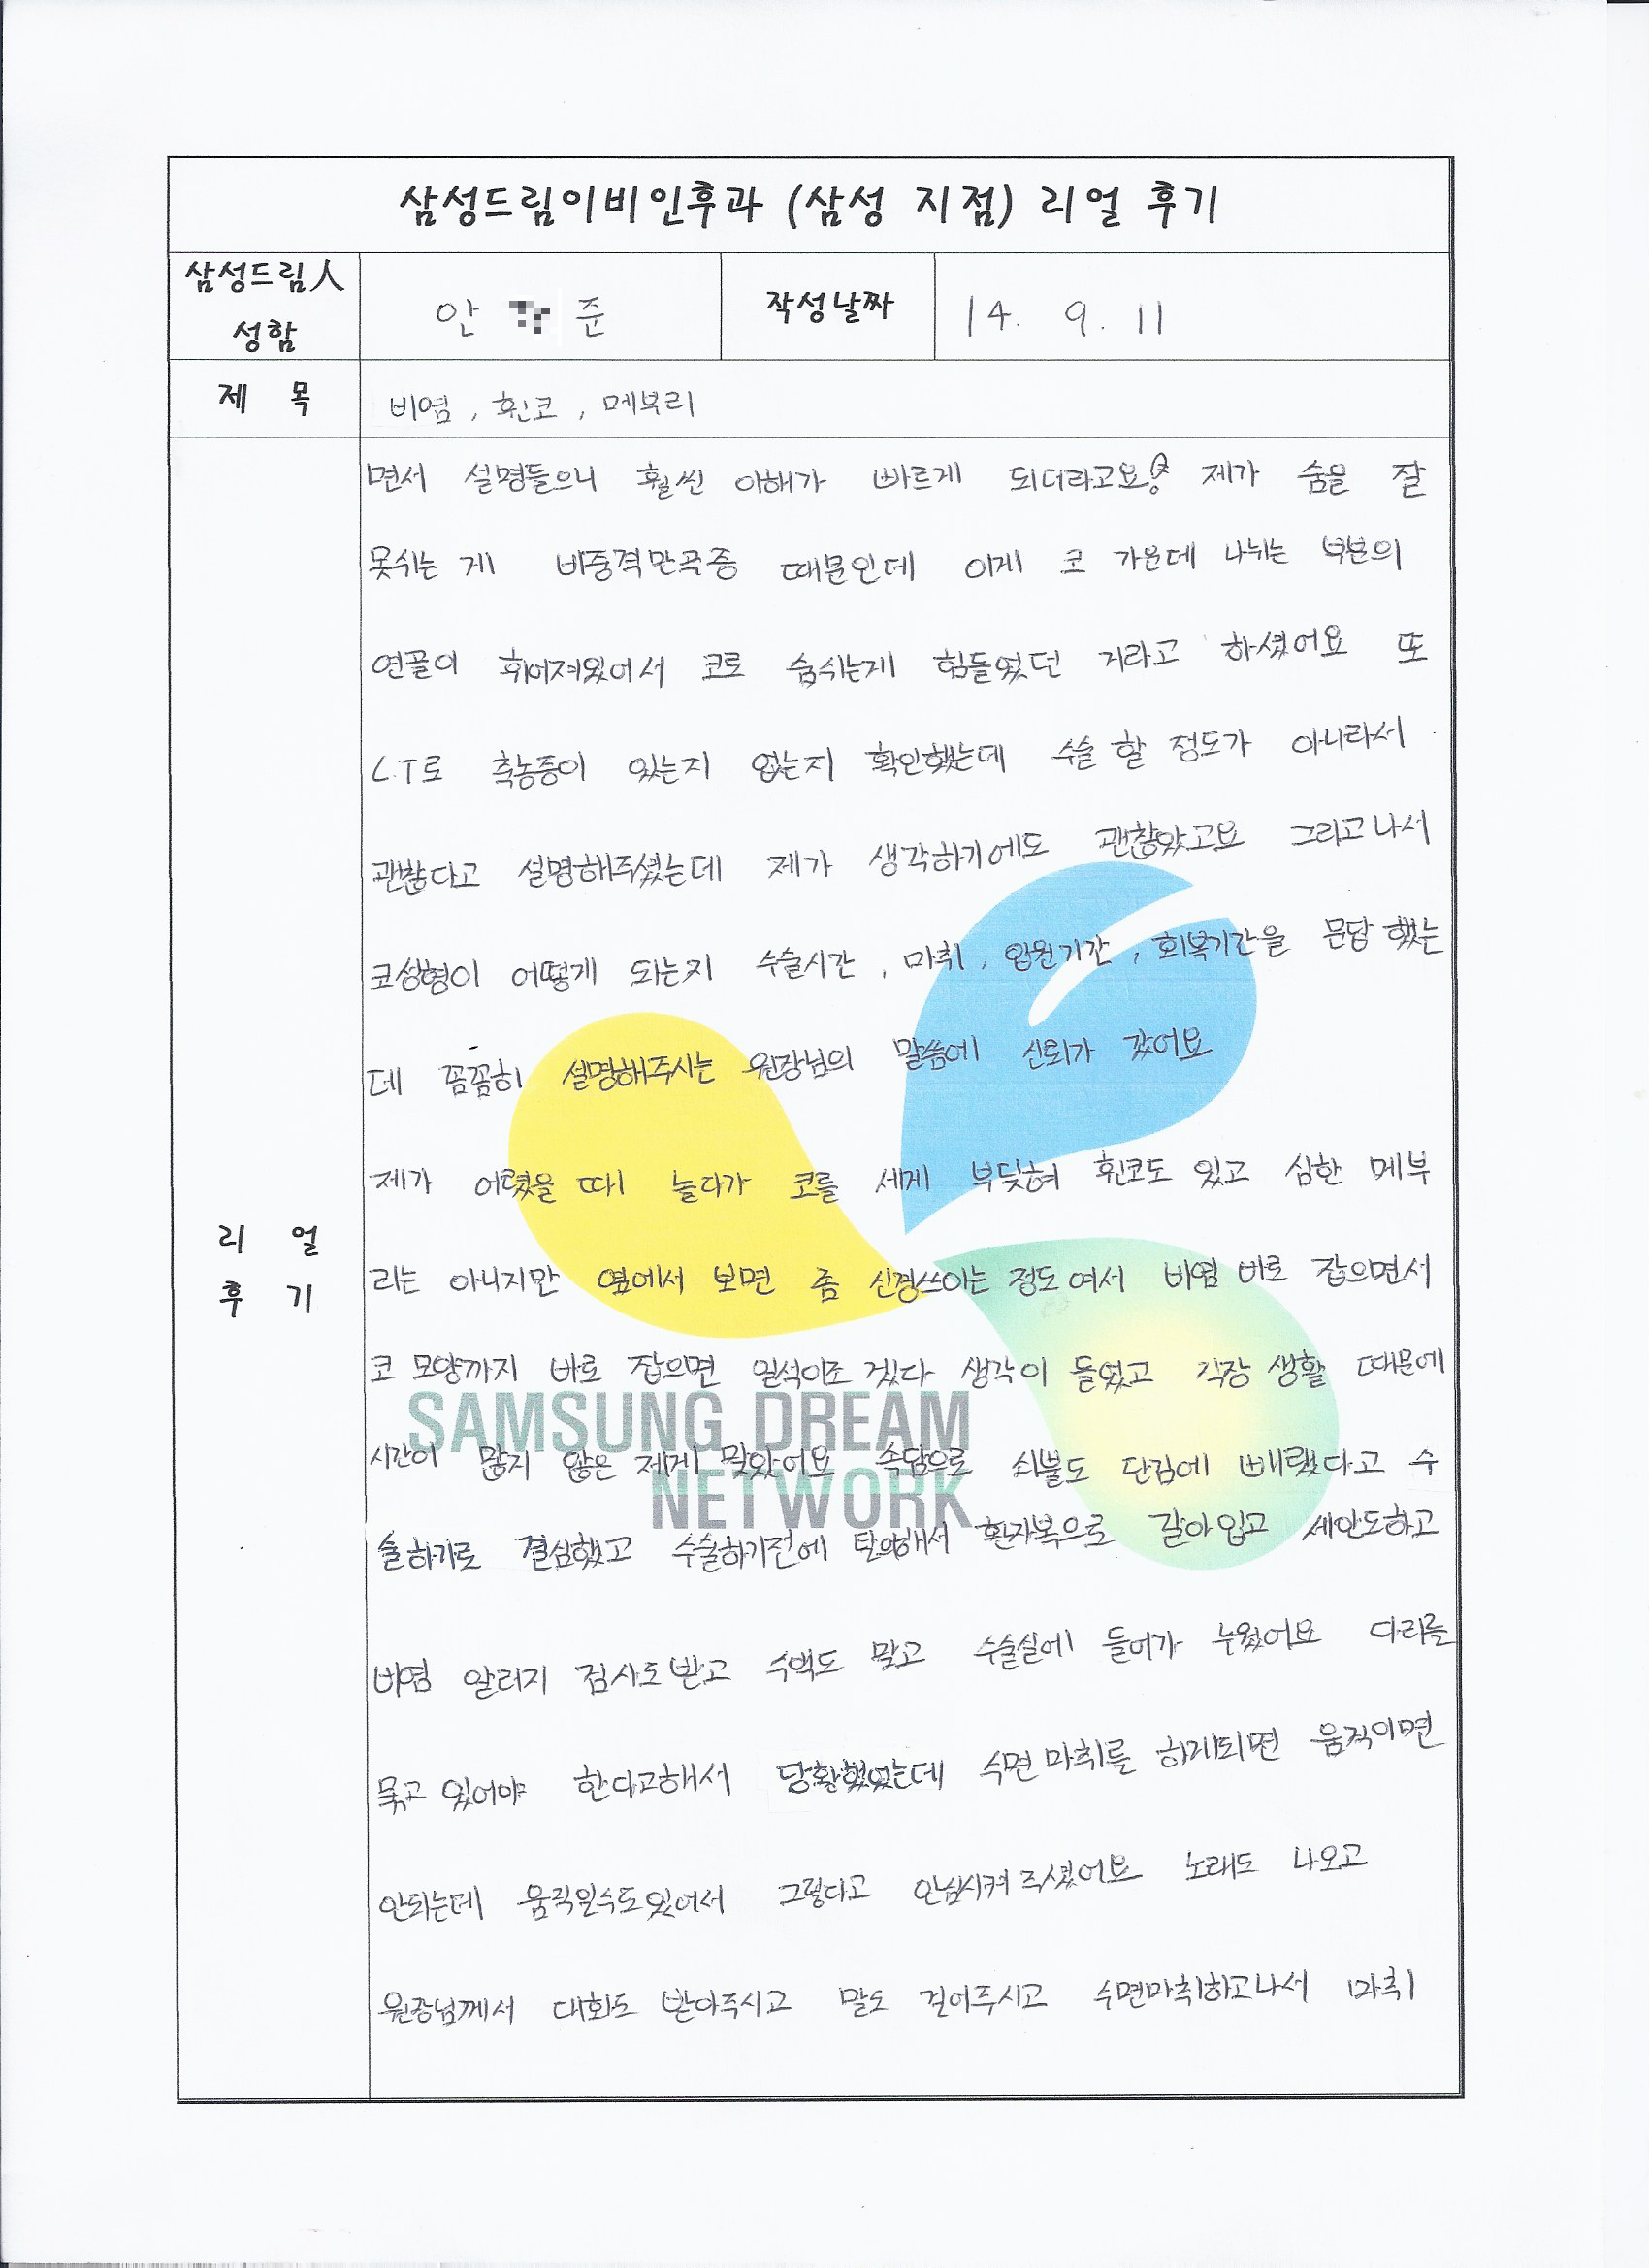 삼성드림이비인후과 (삼성 지점) 리얼 후기
삼성드림人
성함
안 준
작성날짜
14. 9. 11
제 목
비염, 휜코, 메부리
리 얼
후 기
면서 설명들으니 훨씬 이해가 빠르게 되더라고요 제가 숨을 잘
못쉬는 게 비중격만곡증 때문인데 이게 코 가운데 나뉘는 부분의
연골이 휘어져있어서 코로 숨쉬는게 힘들었던 거라고 하셨어요 또
C.T로 축농증이 있는지 없는지 확인했는데 수술 할 정도가 아니라서
괜찮다고 설명해주셨는데 제가 생각하기에도 괜찮았고요 그리고나서
코성형이 어떻게 되는지 수술시간, 마취, 입원기간, 회복기간을 문답 했는
데 꼼꼼히 설명해주시는 원장님의 말씀에 신뢰가 갔어요
제가 어렸을 때 놀다가 코를 세게 부딪혀 휜코도 있고 심한 메부
리는 아니지만 옆에서 보면 좀 신경쓰이는 정도여서 비염 바로 잡으면서
코 모양까지 바로 잡으면 일석이조 겠다 생각이 들었고 직장 생활 때문에
시간이 많지 않은 제게 맞았어요 속담으로 쇠뿔도 단김에 빼랬다고 수
술하기로 결심했고 수술하기전에 탈의해서 환자복으로 갈아입고 세안도하고
비염 알러지 검사도받고 수액도 맞고 수술실에 들어가 누웠어요 다리를
묶고 있어야 한다고해서 당황했었는데 수면마취를 하게되면 움직이면
안되는데 움직일수도있어서 그렇다고 안심시켜 주셨어요 노래도 나오고
원장님께서 대화도 받아주시고 말도 걸어주시고 수면마취하고나서 마취
SAMSUNG DREAM
NETWORK